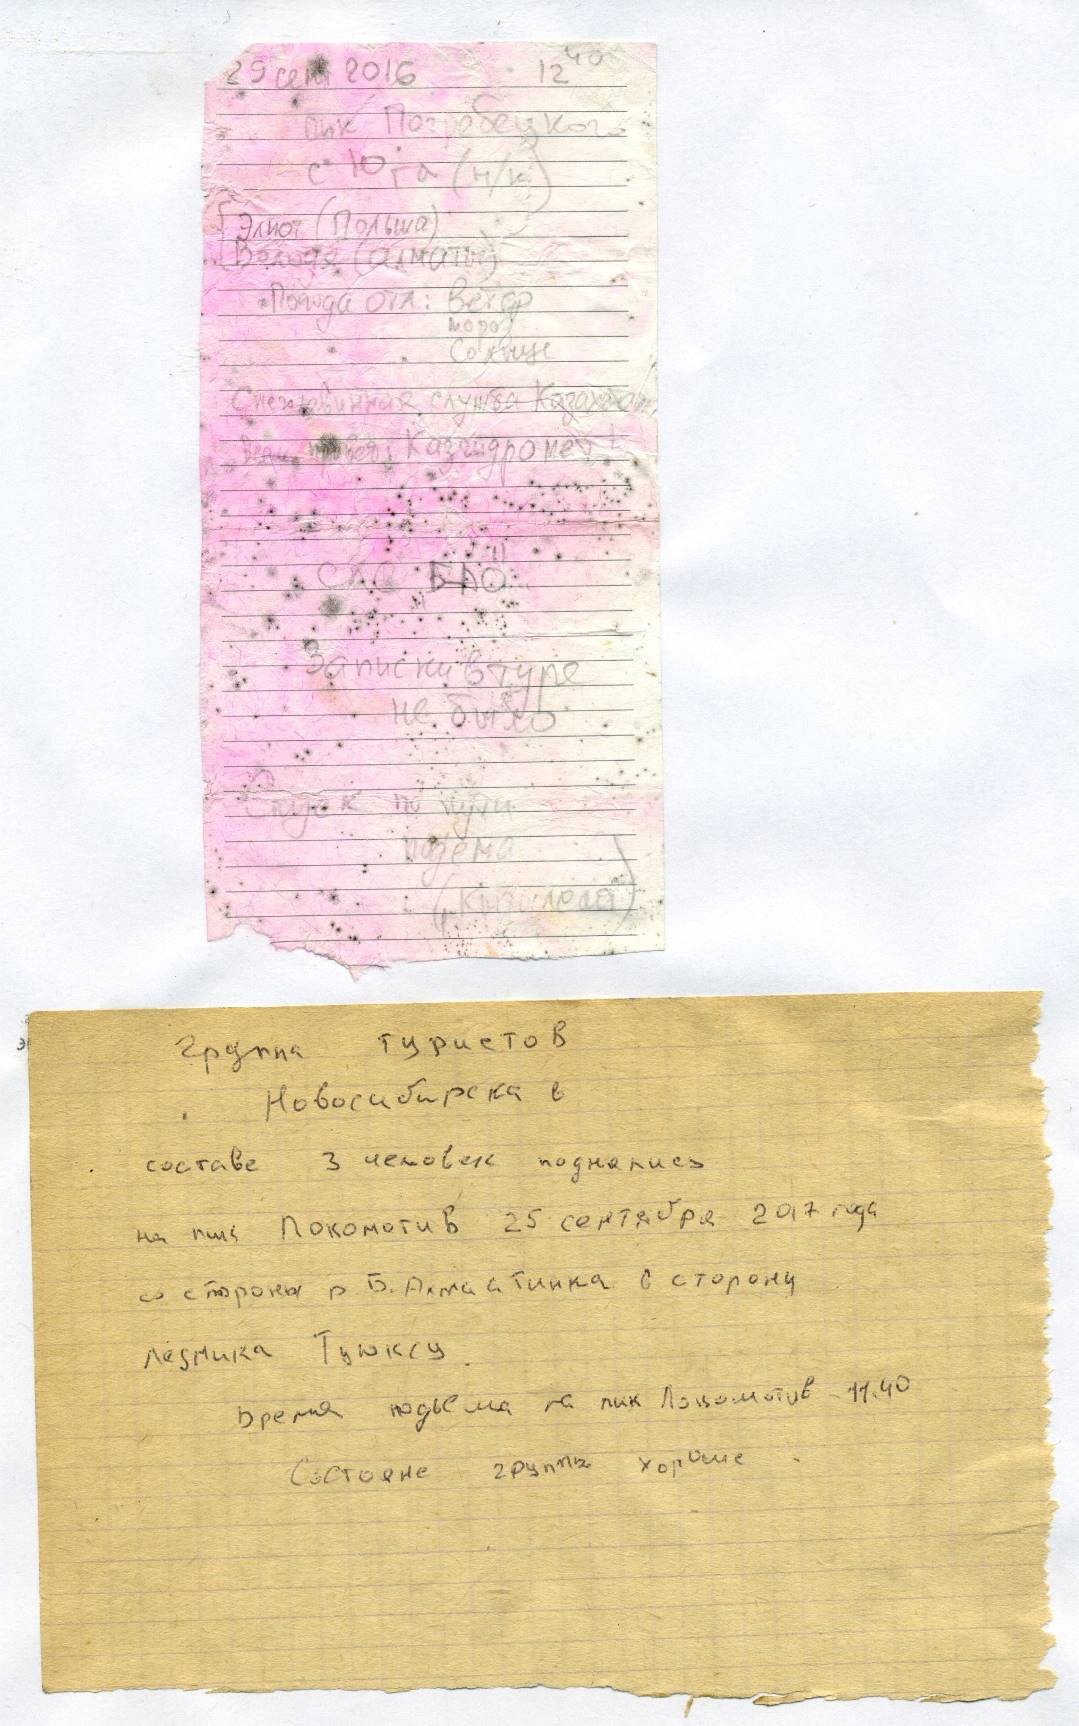 29 сент 2016 12 40
пик Погребецкого
с Юга (н/к)
Элиот (Польша)
Володя (Алматы)
Погода отл: Ветер
мороз
Солнце
Снеголавинная служба Казахстан
Казгидромет!
"БАО"
Записки в туре
не было
Спуск по пути
подъема
группа туристов
Новосибирска в
составе 3 человек поднялись
на пик Локомотив 25 сентября 2017 года
со стороны р Б. Алмаатинка в сторону
ледника Туюксу.
Время подъема на пик Локомотив 11.40
Состояне группы хороше